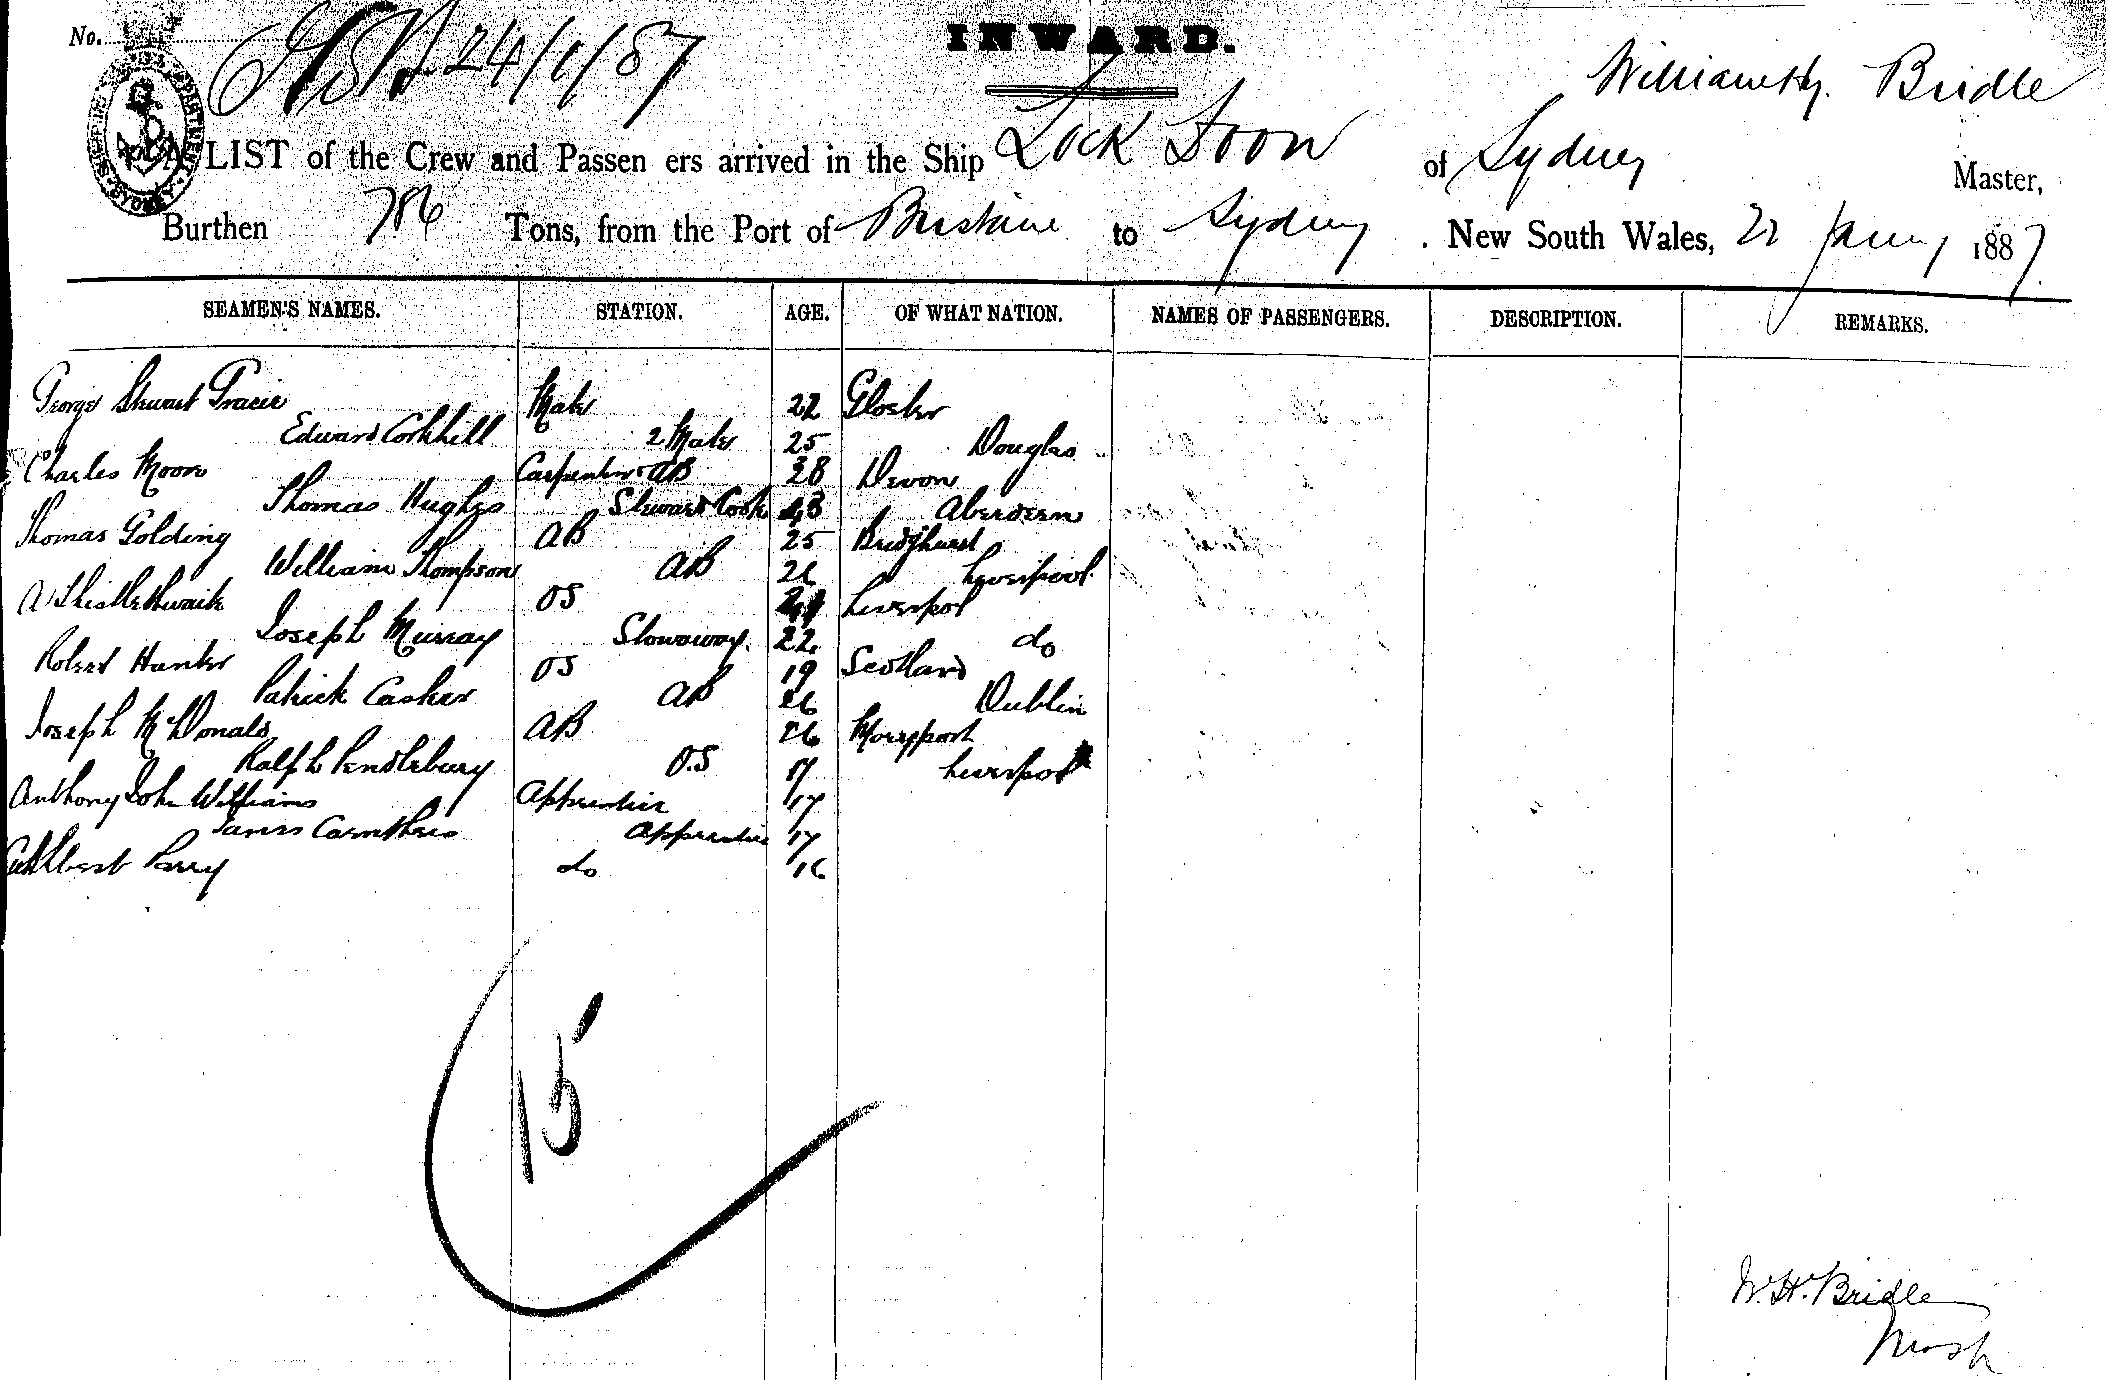 No.
24/1/87
INWARD.
William Hy. Bridle
A LIST of the Crew and Passen ers arrived in the Ship Lock Foon of Sydney Master,
Burthen 786 Tons, from the Port of Brisbane to Sydney . New South Wales, 22 1887.
SEAMEN'S NAMES. STATION. AGE. OF WHAT NATION. NAMES OF PASSENGERS. DESCRIPTION. REMARKS.
George Stewart Gracie Mate 22 Gloster
Edward Corkhill 2 Mate 25 Douglas
Charles Moon Carpenter & AB 28 Devon
Thomas Hughes Steward & Cook 48 Aberdeen
Thomas Golding AB 25 Bridghurst
William Thompson AB 26 Liverpool
A Thistlethwaite OS Liverpol
Joseph Murray Stowaway. 22 do
Robert Hunter OS 19 Scotland
Patrick Casker AB 26 Dublin
Joseph McDonald AB 26 Maryport
Ralph Pendlebury O.S 17 Liverpol
Anthony John Williams Apprentice 17
James Carruthers Apprentice 17
Cuthbert Parry do 16
15
W. H. Bridle